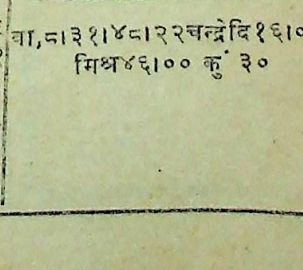 वा,८।३१।४८।२२चन्द्रेदि१६।०
मिश्र४६।०० कुं ३०